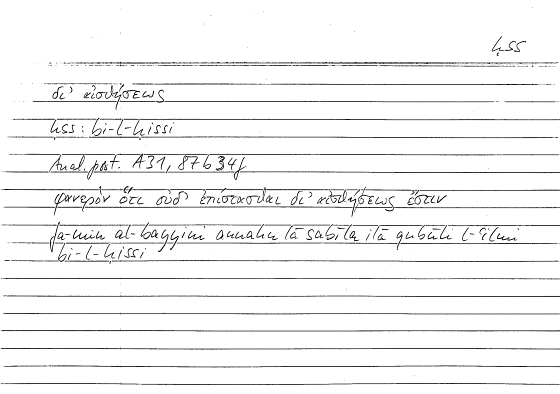 ḥss
δι' αἰσθήσεως
ḥss: bi-l-ḥissi
Anal. post. A31, 87b34f
φανερὸν ὅτι οὐδ' ἐπίστασθαι δι' αἰσθήσεως ἔστιν
fa-min al-bayyini annahu lā sabīla ilā qubūli l-ʿilmi
bi-l-ḥissi